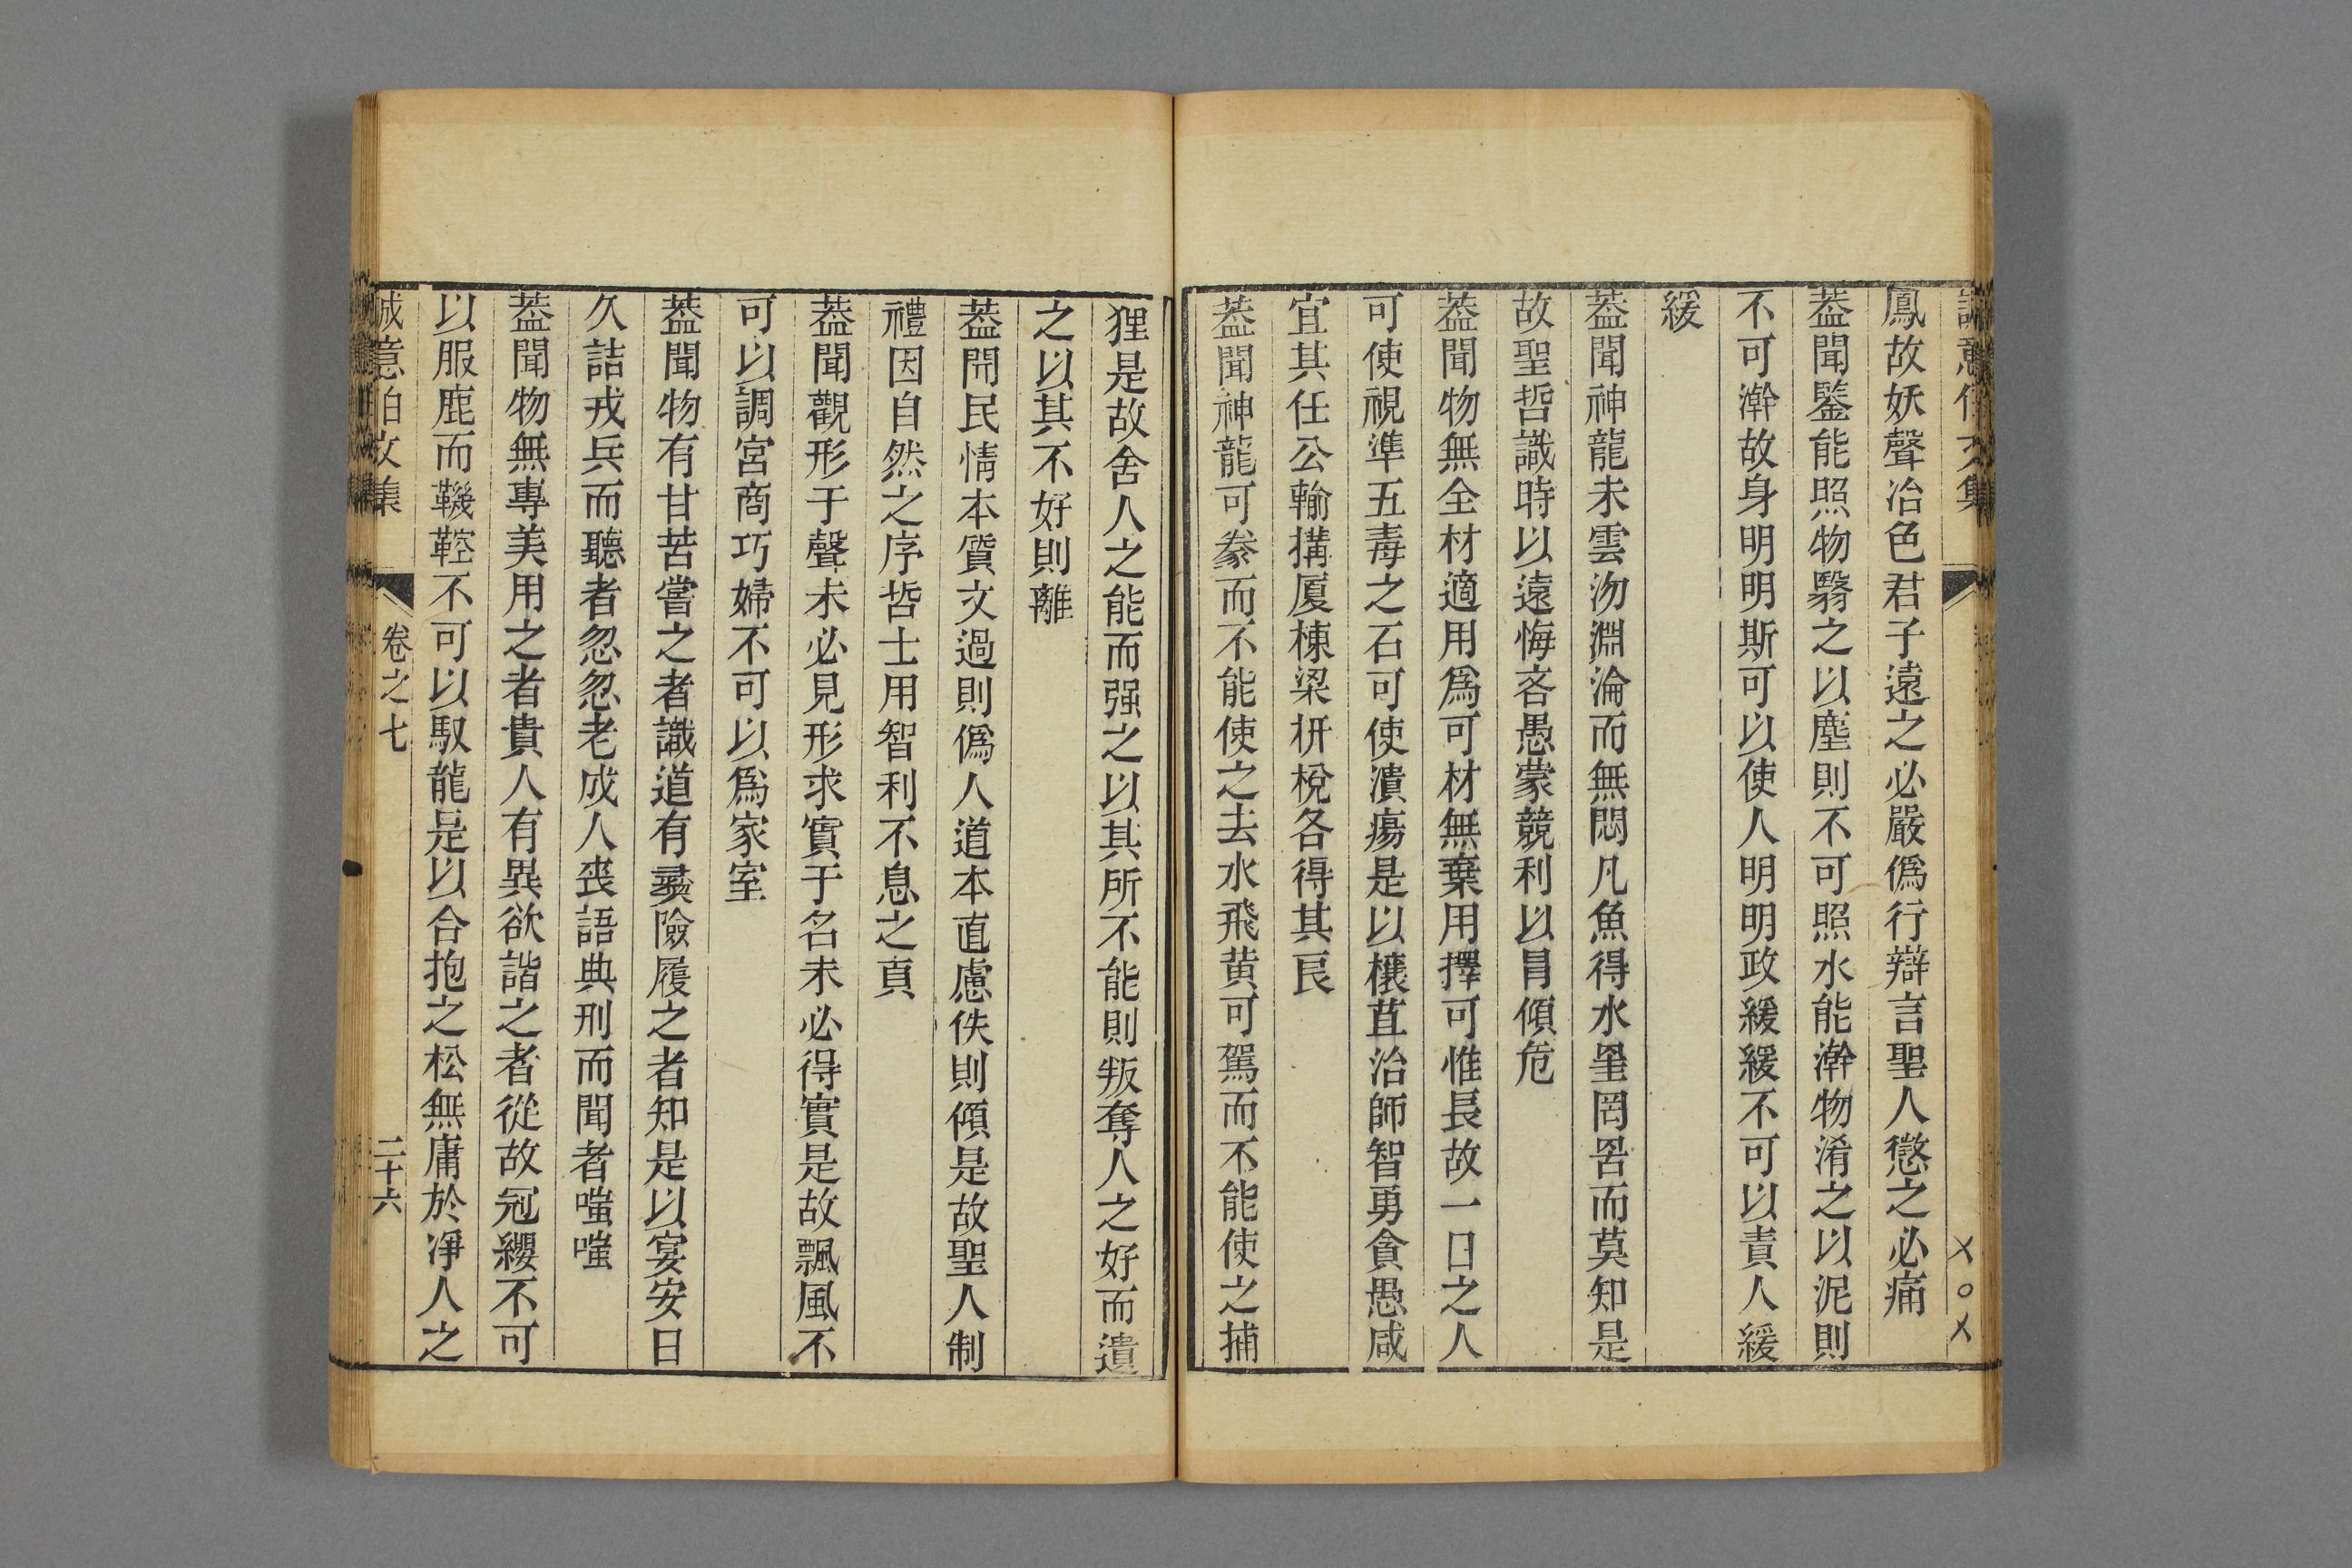 誠意伯文集
鳳故妖聲冶色君子遠之必嚴僞行辯言聖人懲之必痛
葢聞鑒能照物翳之以塵則不可照水能澣物淆之以泥則
不可澣故身明明斯可以使人明明政緩緩不可以責人緩
緩
葢聞神龍未雲沕淵淪而無悶凡魚得水罣罔罟而莫知是
故聖哲識時以遠悔吝愚蒙競利以冐傾危
葢聞物無全材適用爲可材無棄用擇可惟長故一日之人
可使視準五毒之石可使潰瘍是以穰苴治師智勇貪愚咸
宜其任公輸搆厦棟梁枅梲各得其良
葢聞神龍可豢而不能使之去水飛黄可駕而不能使之捕
狸是故舍人之能而强之以其所不能則叛奪人之好而遺
之以其不好則離
葢開民情本質文過則僞人道本直慮佚則傾是故聖人制
禮因自然之序哲士用智利不息之貞
葢聞觀形于聲未必見形求實于名未必得實是故飄風不
可以調宮商巧婦不可以爲家室
葢聞物有甘苦嘗之者識道有彞險履之者知是以宴安日
久詰戎兵而聽者忽忽老成人喪語典刑而聞者嗤嗤
葢聞物無專美用之者貴人有異欲諧之者從故冠纓不可
以服鹿而鞿鞚不可以馭龍是以合抱之松無庸於淨人之
誠意伯文集 卷之七 二十六